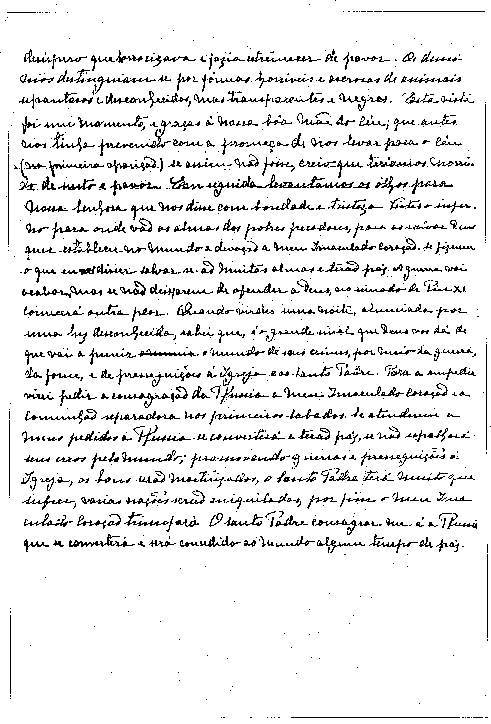 desispero que horrorizava e fazia estremecer de pavor. Os demo-
nios destinguiam-se por formas horriveis e ascrosas de animais
espantosos e desconhecidos, mas transparentes e negros. Esta vista
foi um momento, e graças à nossa bôa Mãe do Céu; que antes
nos tinha prevenido com a promeça de nos levar para o Céu
(na primeira aparição) se assim não fosse, creio que teriamos morri-
do de susto e pavor. Em seguida, levantamos os olhos para
Nossa Senhora que nos disse com bondade e tristeza: Vistes o infer-
no para onde vão as almas dos pobres pecadores, para as salvar Deus
quer establecer no mundo a devoção a meu Imaculado Coração. Se fizerem
o que eu vos disser salvar-se-ão muitas almas e terão paz. A guerra vai
acabar, mas se não deixarem de ofender a Deus, no reinado de Pio XI
comecará outra peor. Quando virdes uma noite, alumiada por
uma luz desconhecida, sabei que, é o grande sinal que Deus vos dá de
que vai a punir o mundo de seus crimes, por meio da guerra,
da fome, e de perseguições à Igreja e ao Santo Padre. Para a empedir
virei pedir a consagração da Russia a meu Imaculado Coração e a
Comunhão reparadora nos primeiros sabados. Se atenderem a
meus pedidos a Russia se converterá e terão paz, se não espalhará
seus erros pelo mundo, promovendo guerras e perseguições à
Igreja, os bons serão martirizados, o Santo Padre terá muito que
sufrer, varias nações serão aniquiladas, por fim o meu Ima-
culado Coração triunfará. O Santo Padre consagrar-me-á a Russia
que se converterá e será consedido ao mundo algum tempo de paz.